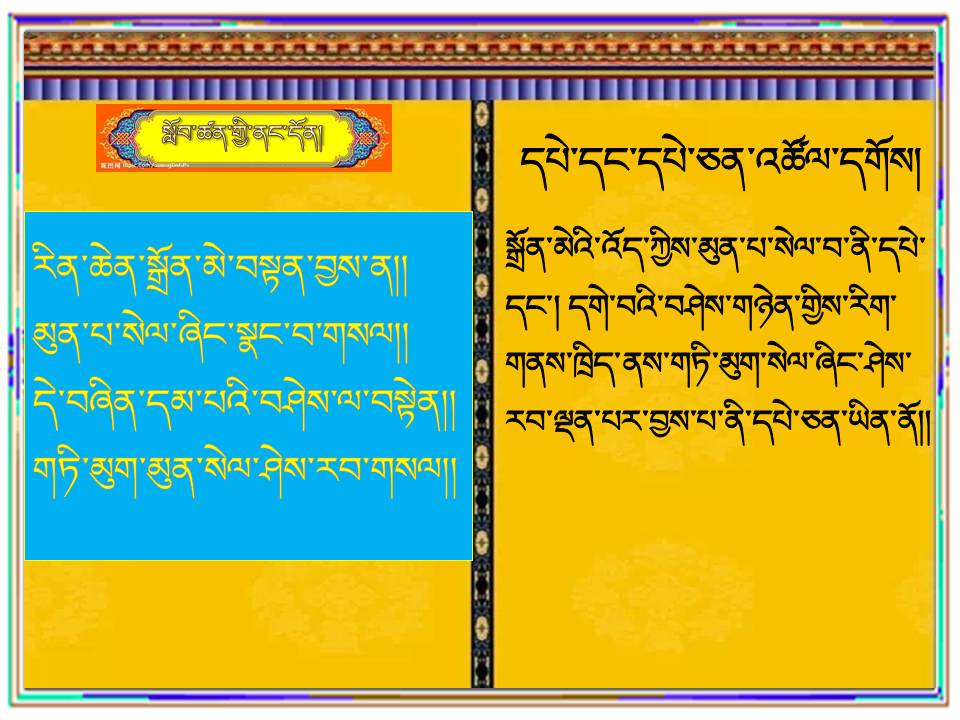 སློབ་ཚན་གྱི་ནང་དོན།
རིན་ཆེན་སྒྲོན་མེ་བསྟན་བྱས་ན།།
མུན་པ་སེལ་ཞིང་སྣང་བ་གསལ།།
དེ་བཞིན་དམ་པའི་བཤེས་ལ་བསྟེན།།
གཏི་མུག་མུན་སེལ་ཤེས་རབ་གསལ།།
དཔེ་དང་དཔེ་ཅན་འཚོལ་དགོས།
སྒྲོན་མེའི་འོད་ཀྱིས་མུན་པ་སེལ་བ་ནི་དཔེ་
དང་། དགེ་བའི་བཤེས་གཉེན་གྱིས་རིག་
གནས་ཁྲིད་ནས་གཏི་མུག་སེལ་ཞིང་ཤེས་
རབ་ལྡན་པར་བྱས་པ་ནི་དཔེ་ཅན་ཡིན་ནོ།།